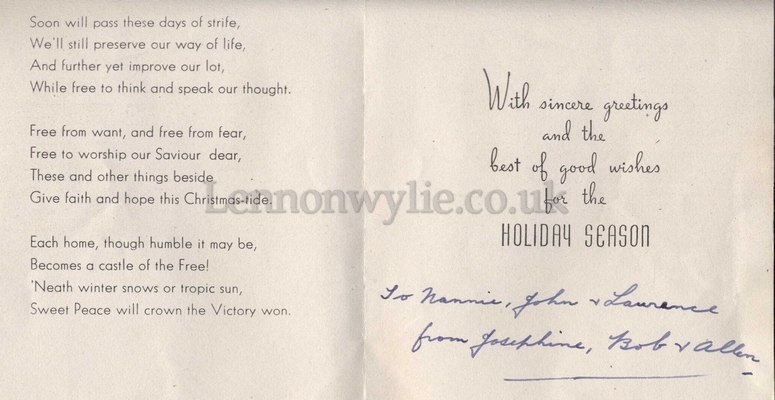 Soon will pass these days of strife,
We'll still preserve our way of life,
And further yet improve our lot,
While free to think and speak our thought.
Free from want, and free from fear,
Free to worship our Saviour dear,
These and other things beside
Give faith and hope this Christmas-tide.
Each home, though humble it may be,
Becomes a castle of the Free!
'Neath winter snows or tropic sun,
Sweet Peace will crown the Victory won.
With sincere greetings
and the
best of good wishes
for the
HOLIDAY SEASON
To Nannie, John & Laurence
from Josephine, Bob & Allen
Lennonwylie.co.uk